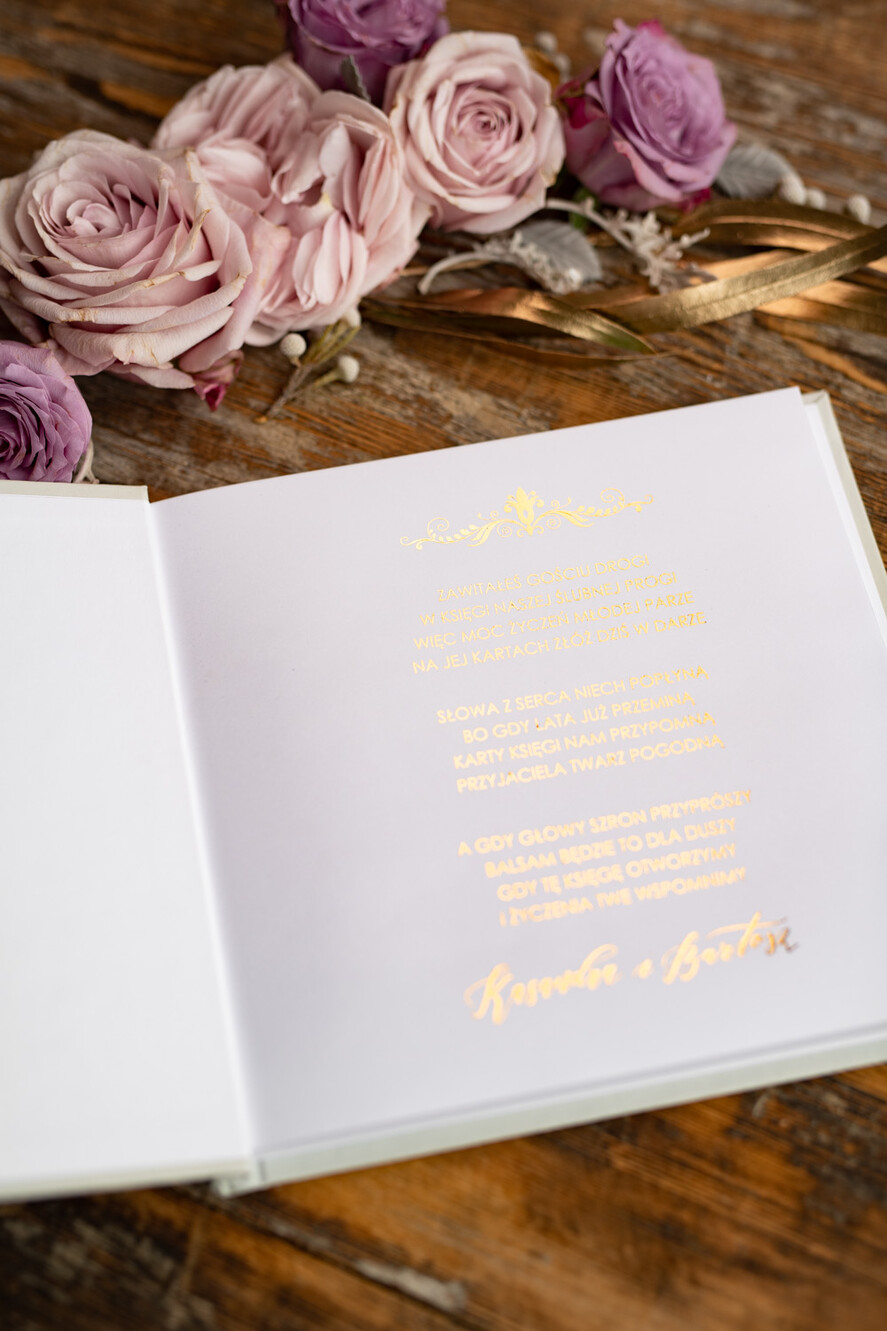 ZAWITAŁEŚ GOŚCIU DROGI
W KSIĘGI NASZEJ ŚLUBNEJ PROGI
WIĘC MOC ŻYCZEŃ MŁODEJ PARZE
NA JEJ KARTACH ZŁÓŻ DZIŚ W DARZE
SŁOWA Z SERCA NIECH POPŁYNĄ
BO GDY LATA JUŻ PRZEMINĄ
KARTY KSIĘGI NAM PRZYPOMNĄ
PRZYJACIELA TWARZ POGODNĄ
A GDY GŁOWY SZRON PRZYPRÓSZY
BALSAM BĘDZIE TO DLA DUSZY
GDY TĘ KSIĘGĘ OTWORZYMY
I ŻYCZENIA TWE WSPOMNIMY
i Bartosz